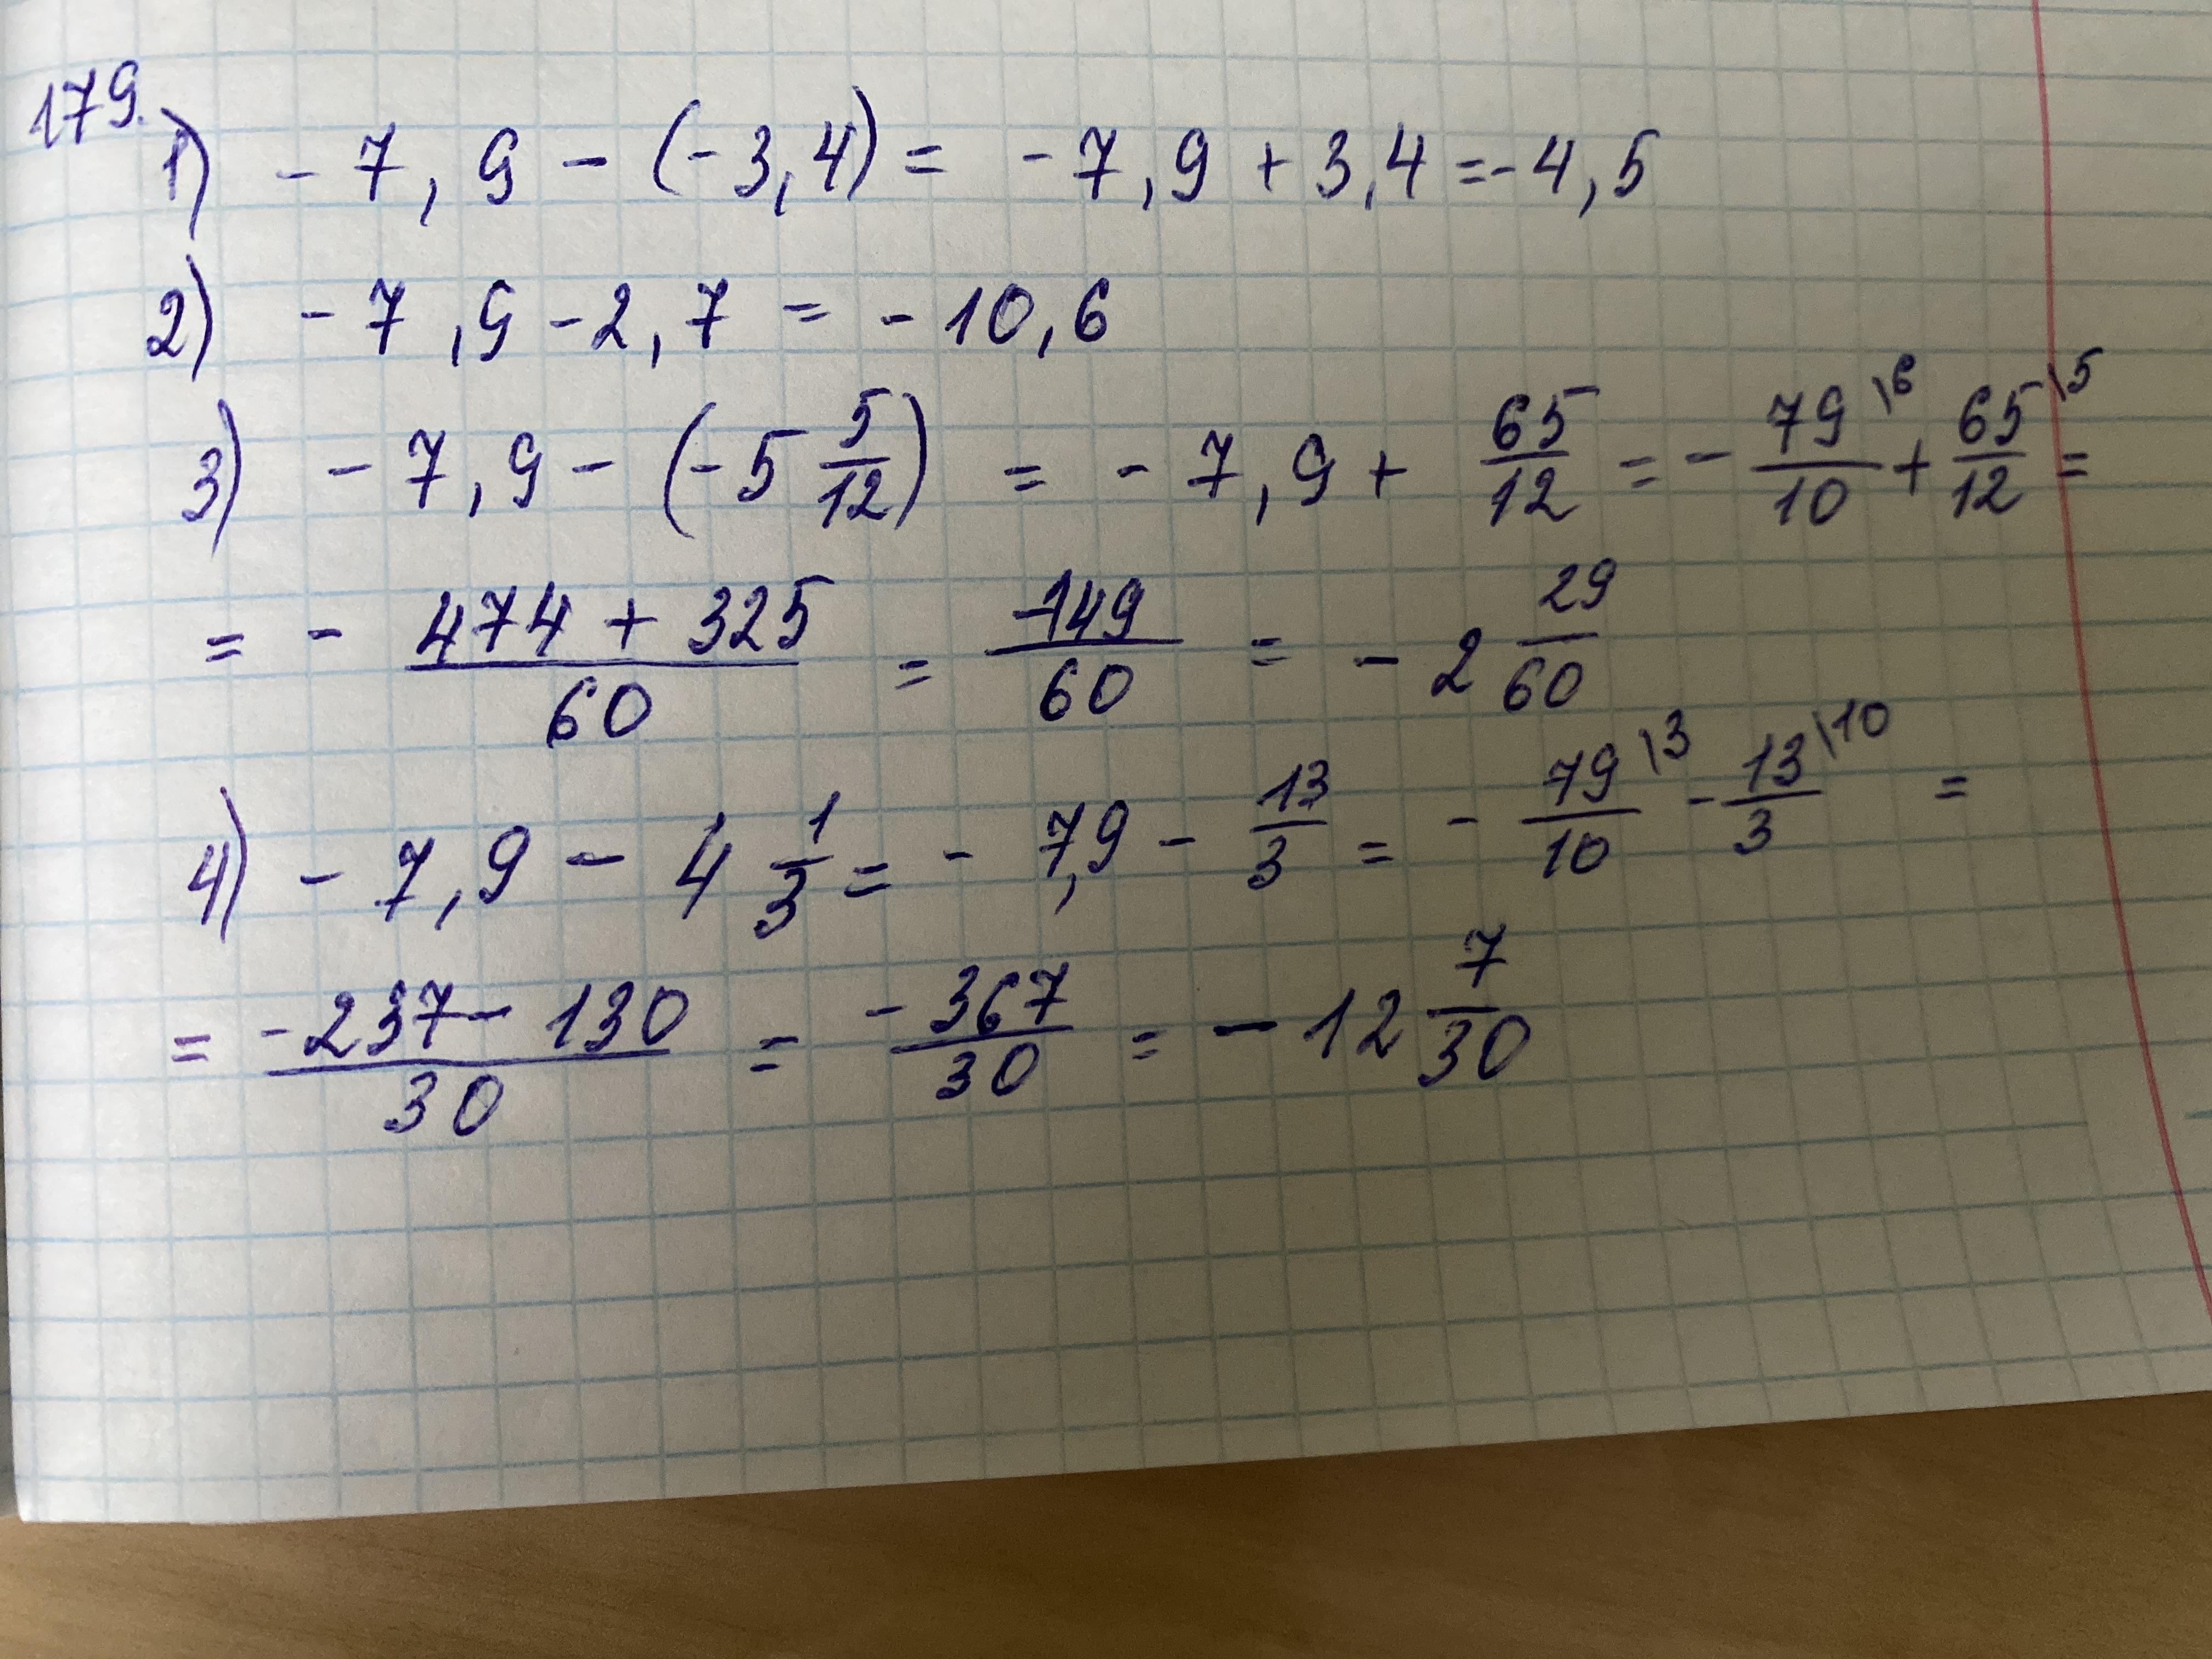 179.
1) - 7,9 - (-3,4) = -7,9 + 3,4 = -4,5
2) - 7,9 - 2,7 = - 10,6
3) - 7,9 - (-5 5/12) = - 7,9 + 65/12 = - 79/10 \6 + 65/12 \5 =
= - 474 + 325/60 = -149/60 = - 2 29/60
4) - 7,9 - 4 1/3 = - 7,9 - 13/3 = - 79/10 \3 - 13/3 \10 =
= -237 - 130/30 = -367/30 = - 12 7/30